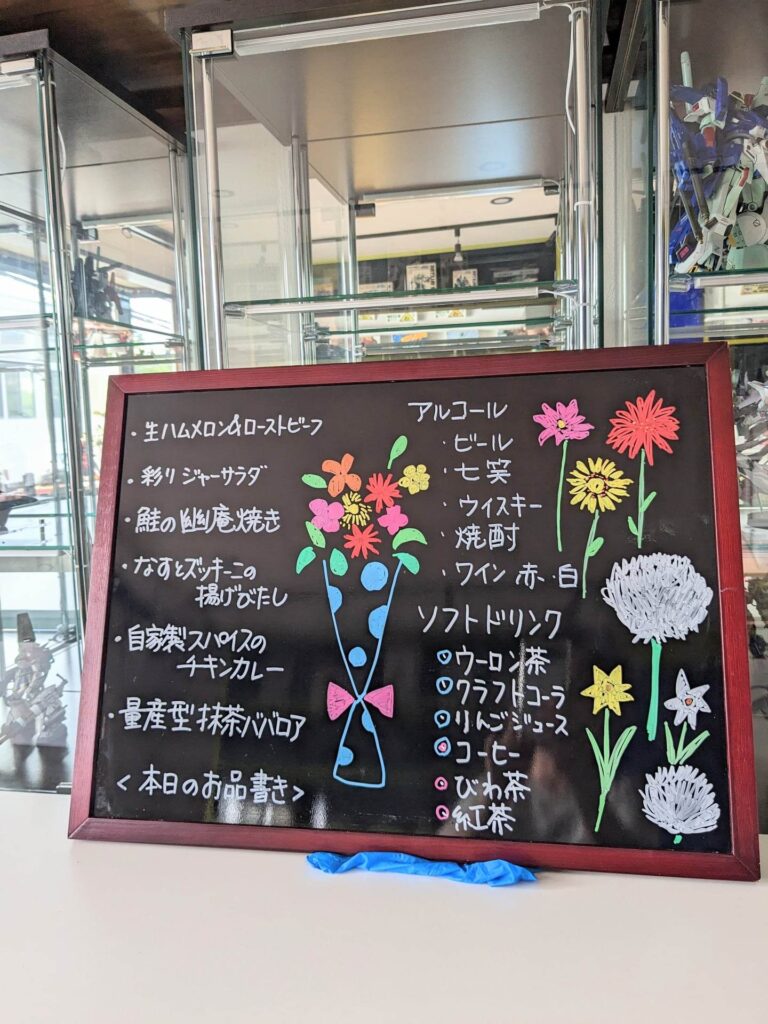 ・生ハムメロン&ローストビーフ
・彩りジャーサラダ
・鮭の幽庵焼き
・なすとズッキーニの
揚げびたし
・自家製スパイスの
チキンカレー
・量産型抹茶ババロア
<本日のお品書き>
アルコール
・ビール
・七笑
・ウイスキー
・焼酎
・ワイン 赤・白
ソフトドリンク
ウーロン茶
クラフトコーラ
りんごジュース
コーヒー
びわ茶
紅茶